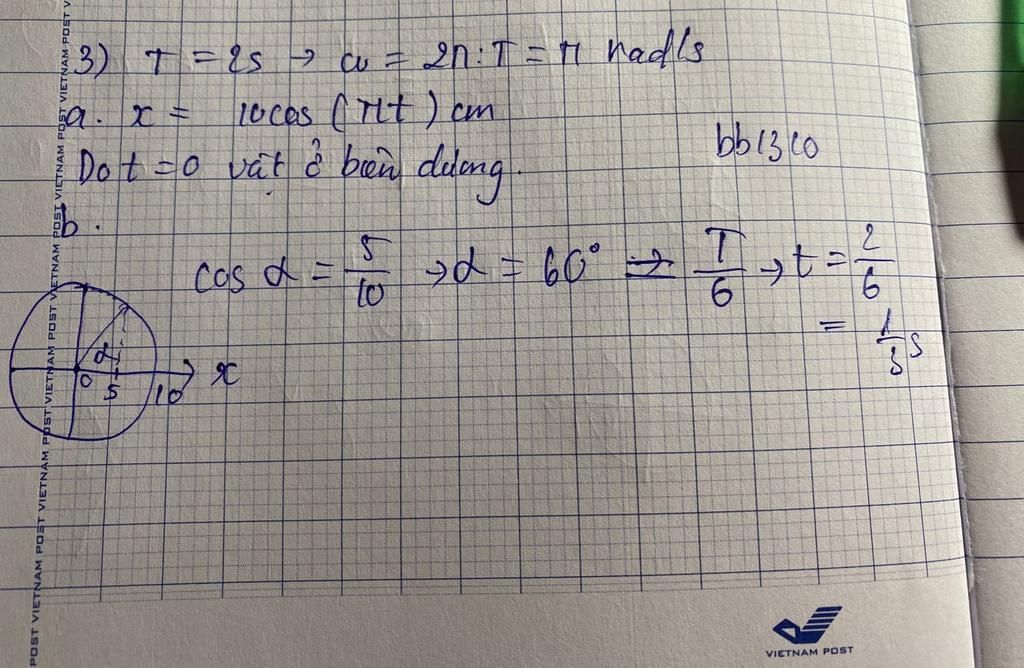 3) T = 2s → ω = 2π : T = π rad/s
a. x = 10cos (πt) cm
Do t = 0 vật ở biên dương.
bb1310
b.
cos α = 5/10 → α = 60° ⇒ T/6 → t = 2/6
= 1/3 s
α
0 5 10 x
POST VIETNAM POST VIETNAM POST VIETNAM POST VIETNAM POST VIETNAM POST VIETNAM POST VIETNAM POST VIETNAM POST
VIETNAM POST